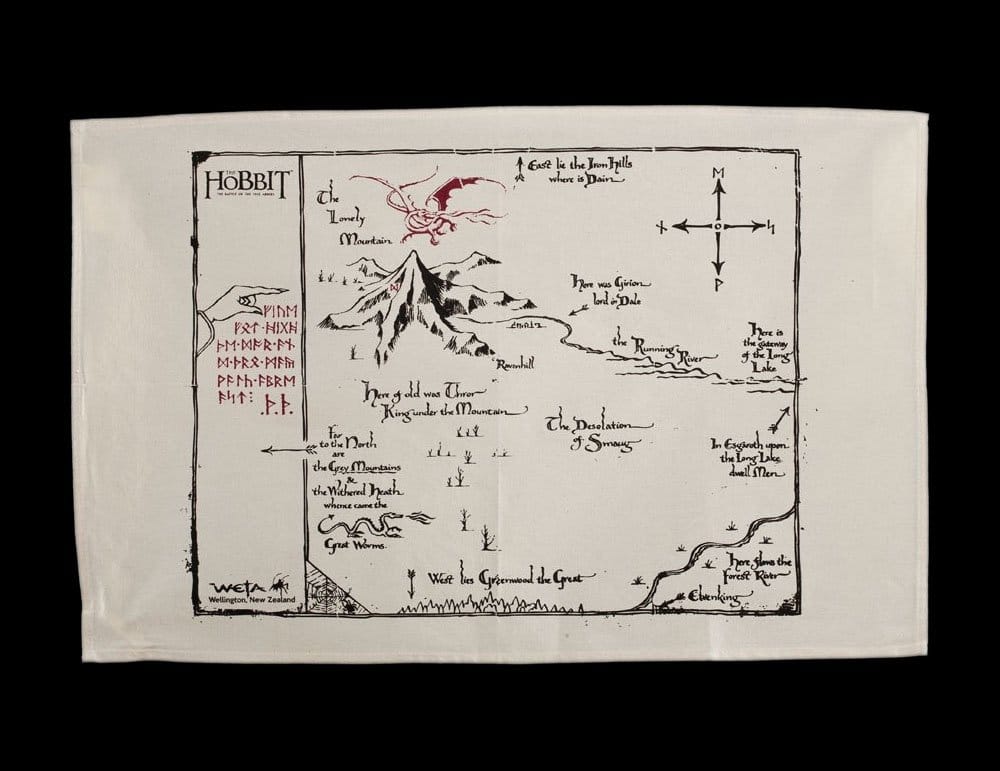 THE
HOBBIT
THE BATTLE OF THE FIVE ARMIES
The
Lonely
Mountain
East lie the Iron Hills
where is Dain
ᛖ
ᚾ
ᛋ
ᚹ
ᛞ
Here was Girion
lord in Dale
ᚠᛁᚢᛖ
ᚠᚩᛏ᛫ᚻᛁᚷᚻ
ᚦᛖ᛫ᛞᚩᚱ᛫ᚪᚾ
ᛞ᛫ᚦᚱᛟ᛫ᛗᚪᚣ
ᚹᚪᛚᚳ᛫ᚪᛒᚱᛖ
ᚪᛋᛏ᛬
᛫ᚦ᛫ᚦ᛫
the Running River
Here is
the gateway
of the Long
Lake
Ravenhill
Here of old was Thror
King under the Mountain
The Desolation
of Smaug
Far
to the North
are
the Grey Mountains
&
the Withered Heath
whence came the
Great Worms.
In Esgaroth upon
the Long Lake
dwell Men
West lies Greenwood the Great
Here flows the
Forest River
Elvenking
WETA
Wellington, New Zealand